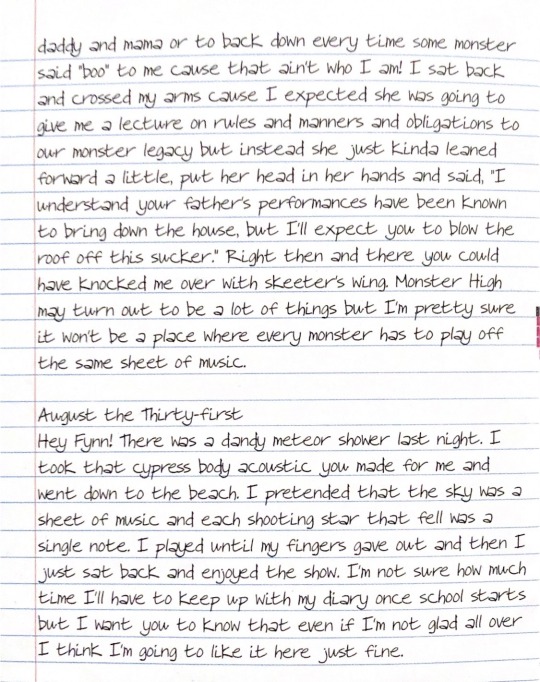 daddy and mama or to back down every time some monster
said "boo" to me cause that ain't who I am! I sat back
and crossed my arms cause I expected she was going to
give me a lecture on rules and manners and obligations to
our monster legacy but instead she just kinda leaned
forward a little, put her head in her hands and said, "I
understand your father's performances have been known
to bring down the house, but I'll expect you to blow the
roof off this sucker." Right then and there you could
have knocked me over with skeeter's wing. Monster High
may turn out to be a lot of things but I'm pretty sure
it won't be a place where every monster has to play off
the same sheet of music.

August the Thirty-first
Hey Fynn! There was a dandy meteor shower last night. I
took that cypress body acoustic you made for me and
went down to the beach. I pretended that the sky was a
sheet of music and each shooting star that fell was a
single note. I played until my fingers gave out and then I
just sat back and enjoyed the show. I'm not sure how much
time I'll have to keep up with my diary once school starts
but I want you to know that even if I'm not glad all over
I think I'm going to like it here just fine.